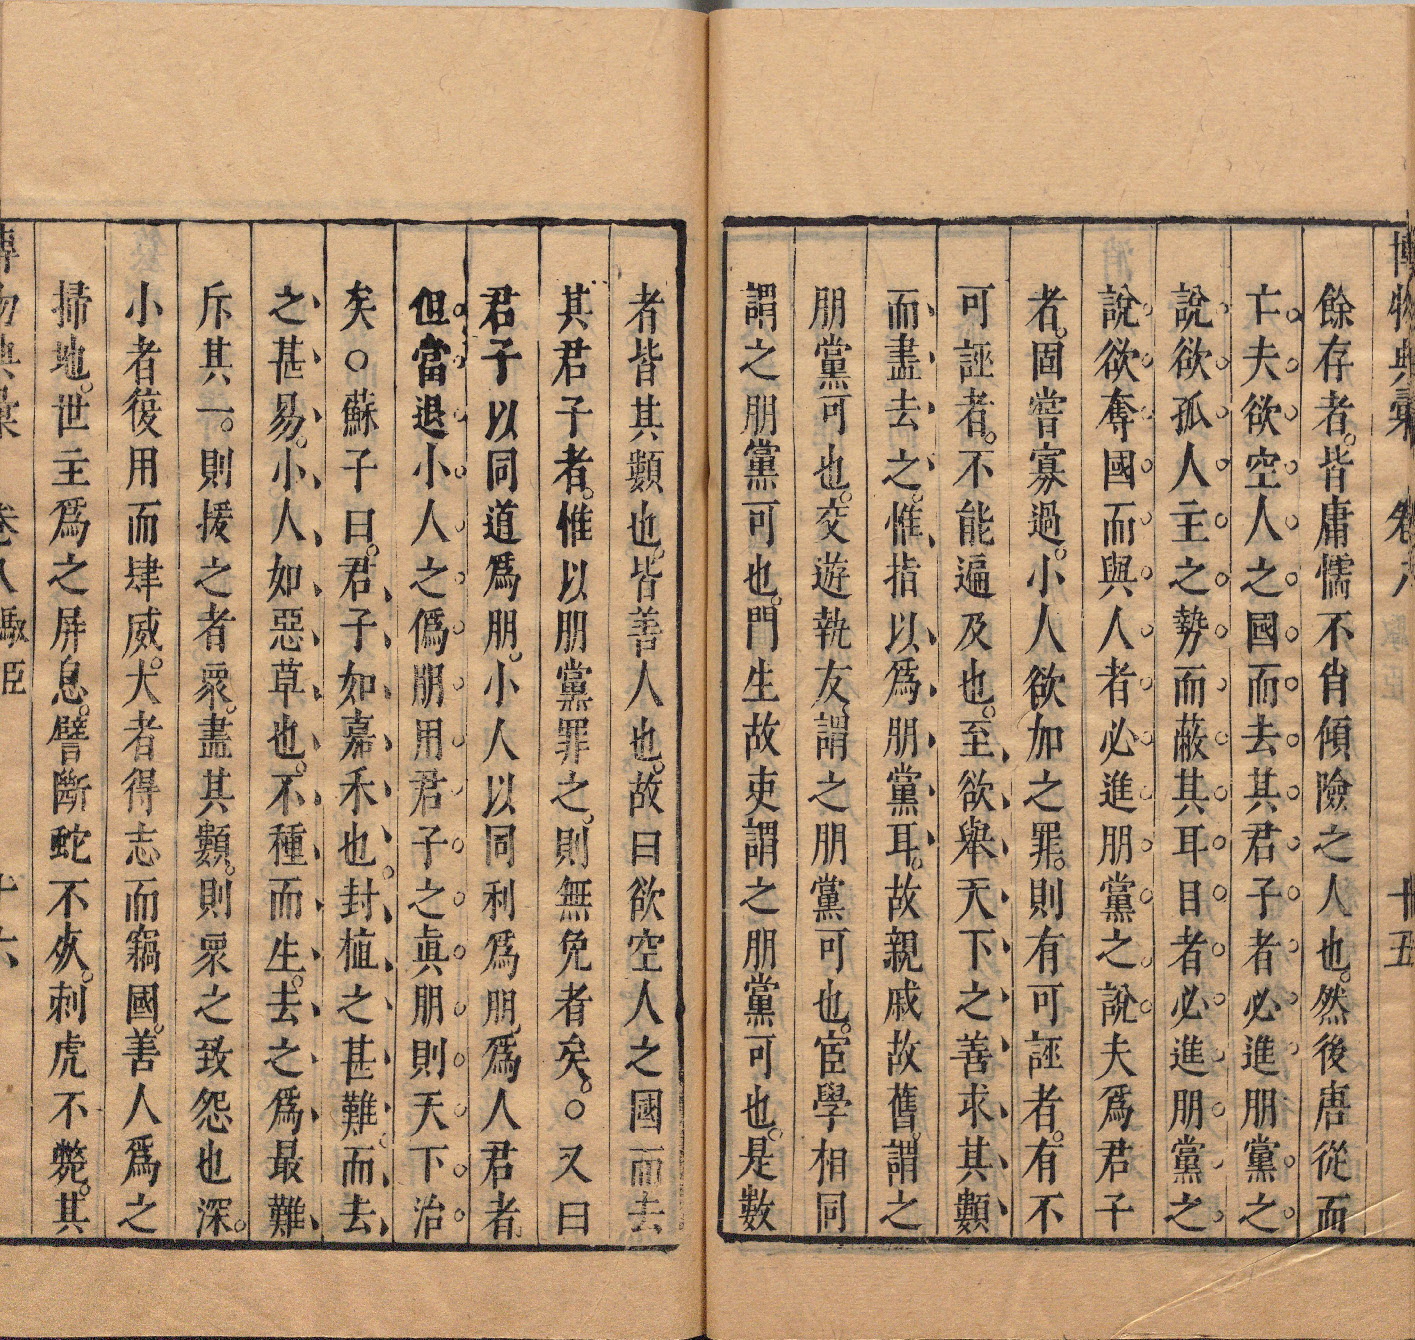 博物典彙 卷八 馭臣 十五
餘存者皆庸懦不肖傾險之人也然後唐從而
亡夫欲空人之國而去其君子者必進朋黨之
說欲孤人主之勢而蔽其耳目者必進朋黨之
說欲奪國而與人者必進朋黨之說夫爲君子
者固嘗寡過小人欲加之罪則有可誣者有不
可誣者不能遍及也至欲舉天下之善求其類
而盡去之惟指以爲朋黨耳故親戚故舊謂之
朋黨可也交遊執友謂之朋黨可也宦學相同
謂之朋黨可也門生故吏謂之朋黨可也是數
者皆其類也皆善人也故曰欲空人之國而去
其君子者惟以朋黨罪之則無免者矣○又曰
君子以同道爲朋小人以同利爲朋爲人君者
但當退小人之僞朋用君子之眞朋則天下治
矣○蘇子曰君子如嘉禾也封植之甚難而去
之甚易小人如惡草也不種而生去之爲最難
斥其一則援之者衆盡其類則衆之致怨也深
小者復用而肆威大者得志而竊國善人爲之
掃地世主爲之屏息譬斷蛇不死刺虎不斃其
博物典彙 卷八 馭臣 十六